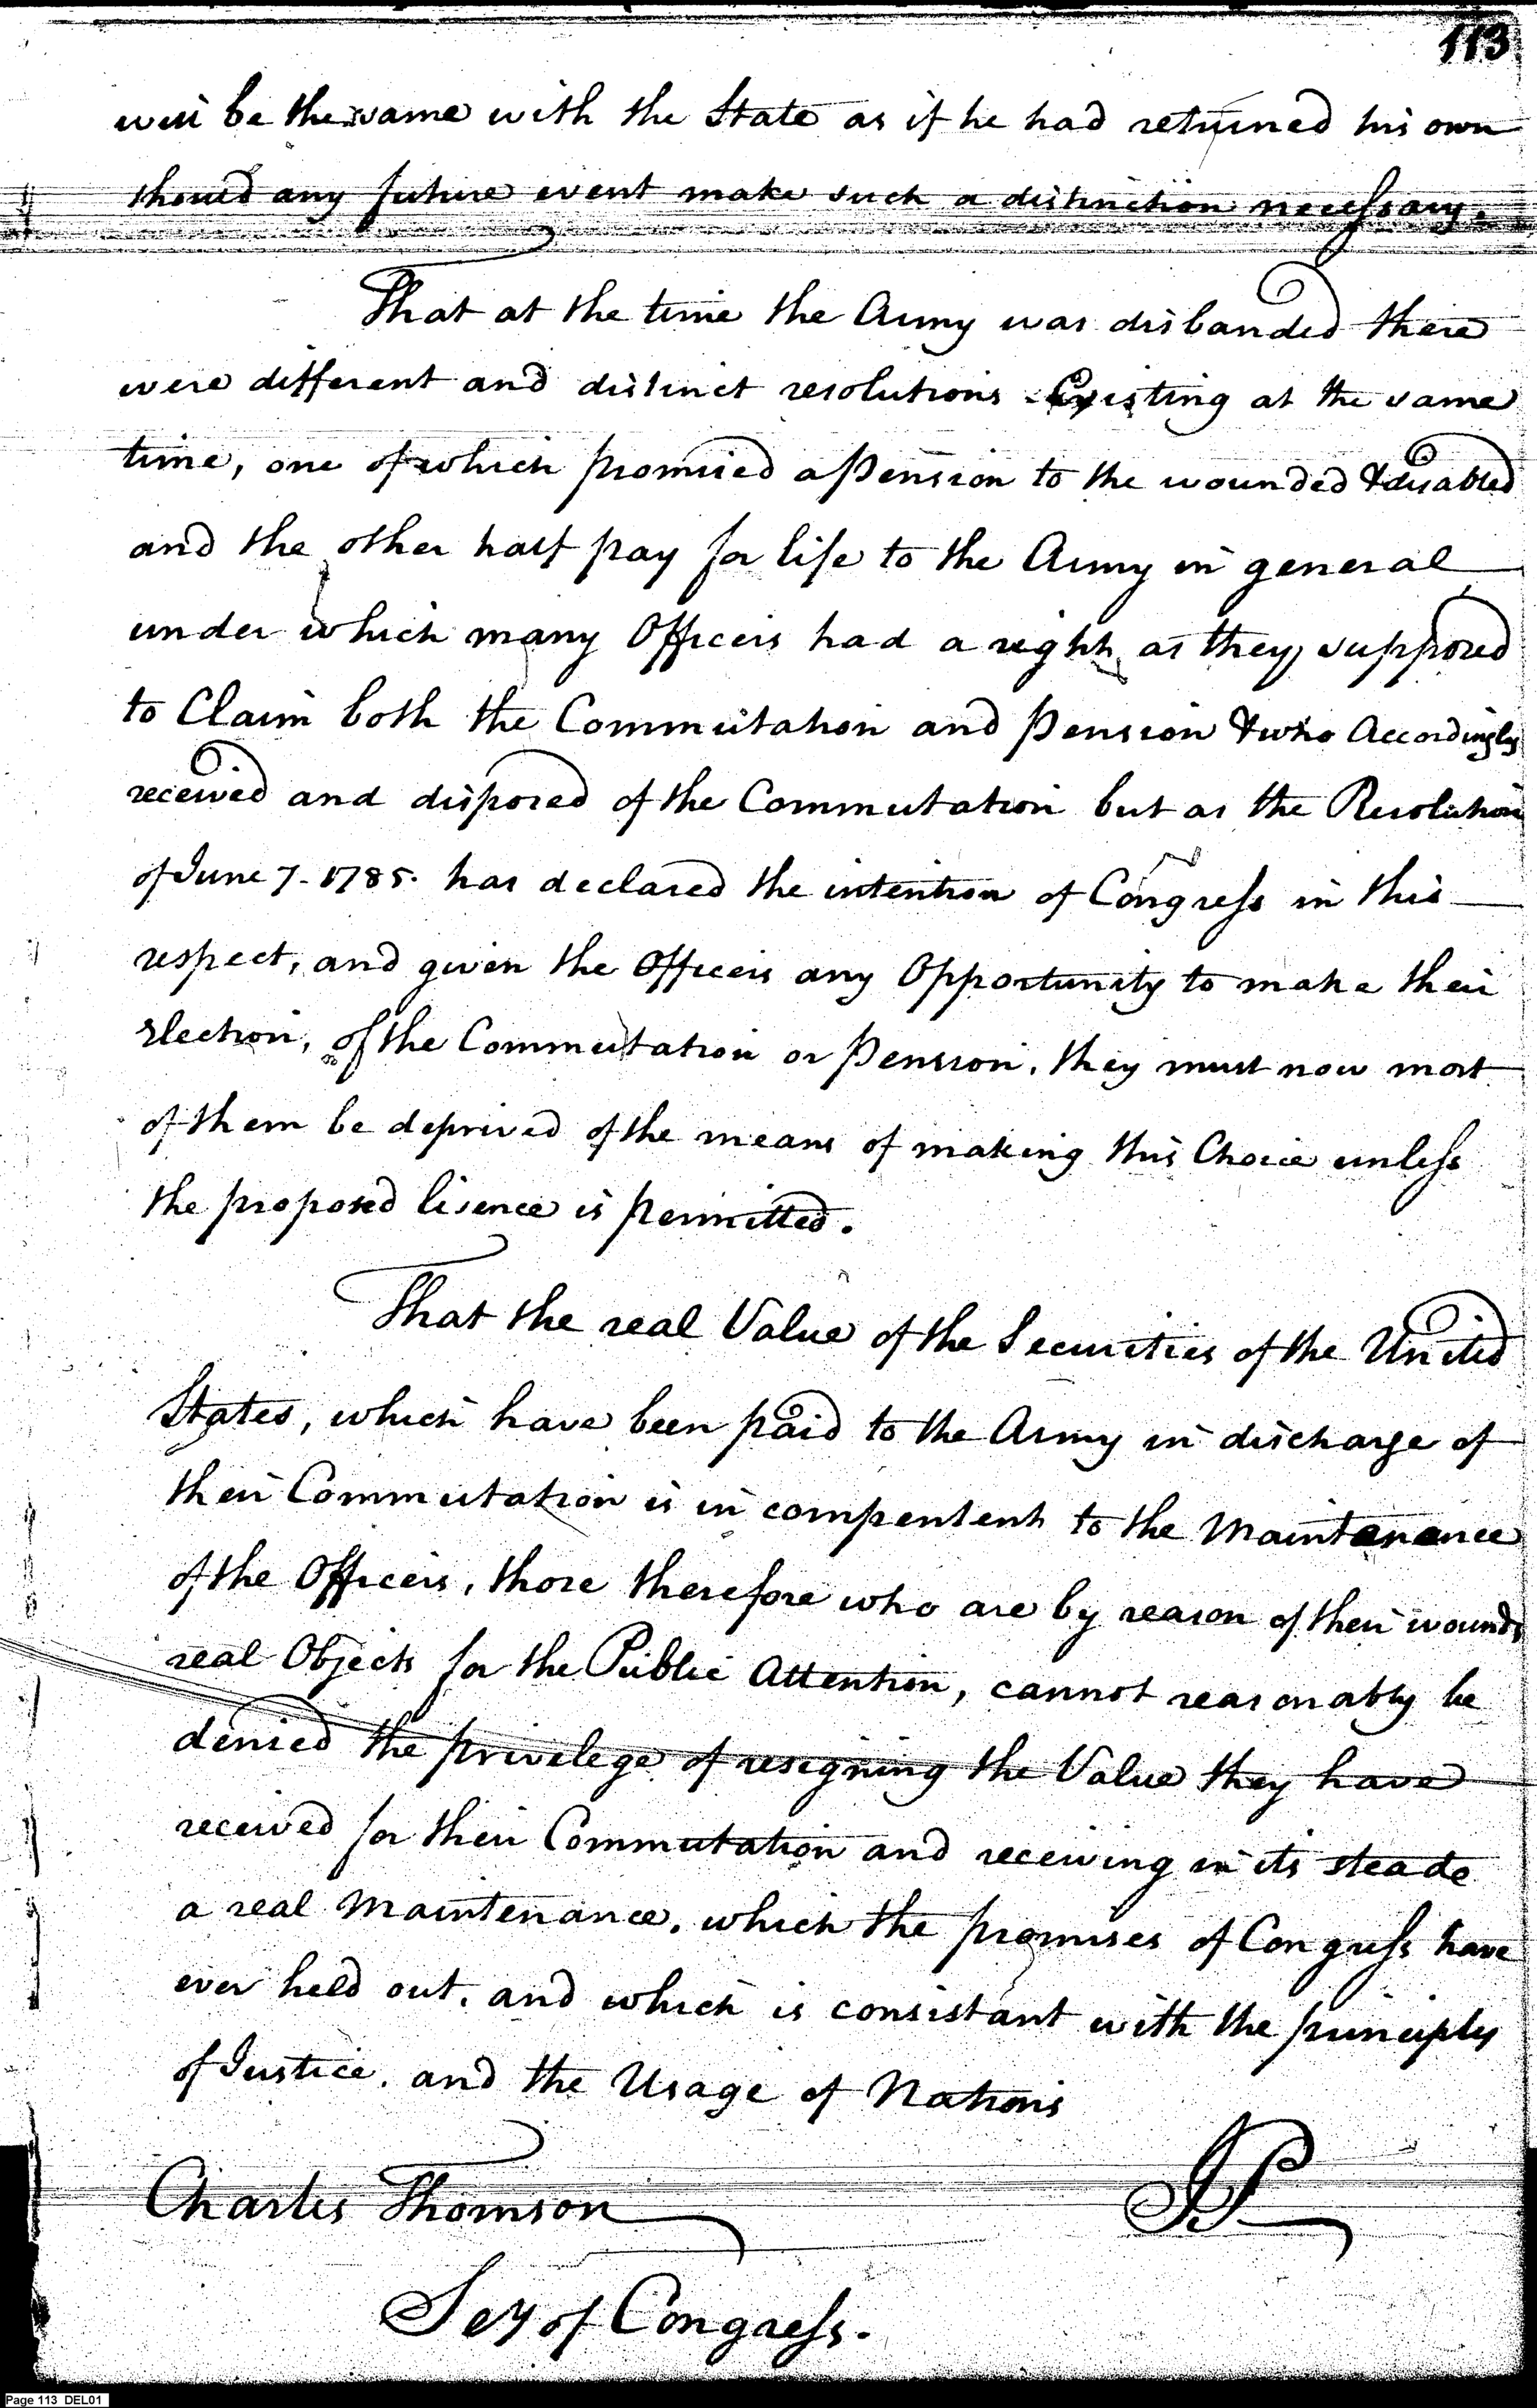 113
will be the same with the State as if he had returned his own
should any future event make such a distinction necessary.
That at the time the Army was disbanded there
were different and distinct resolutions Existing at the same
time, one of which promised a Pension to the wounded & disabled
and the other half pay for life to the Army in general
under which many Officers had a right as they supposed
to Claim both the Commutation and Pension & who Accordingly
received and disposed of the Commutation but as the Resolution
of June 7. 1785. has declared the intention of Congress in this
respect, and given the Officers any Opportunity to make their
Election, of the Commutation or Pension, they must now most
of them be deprived of the means of making this Choice unless
the proposed lisence is permitted.
That the real Value of the Securities of the United
States, which have been paid to the Army in discharge of
their Commutation is in compentent to the Maintenance
of the Officers, those therefore who are by reason of their wounds
real Objects for the Public Attention, cannot reasonably be
denied the privelege of resigning the Value they have
received for their Commutation and receiving in its steade
a real Maintenance, which the promises of Congress have
ever held out, and which is consistant with the principly
of Justice, and the Usage of Nations
Charles Thomson
Secy of Congress.
Page 113 DEL01